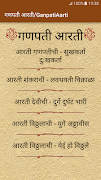 गणपती आरती/GanpatiAarti
गणपती आरती
आरती गणपतीची - सुखकर्ता
दुःखकर्ता
आरती शंकराची - लवथवती विक्राळा
आरती देवीची - दुर्गे दुर्घट भारी
आरती विठ्ठलाची - युगे अठ्ठावीस
आरती विठ्ठलाची - येई हो विठ्ठले